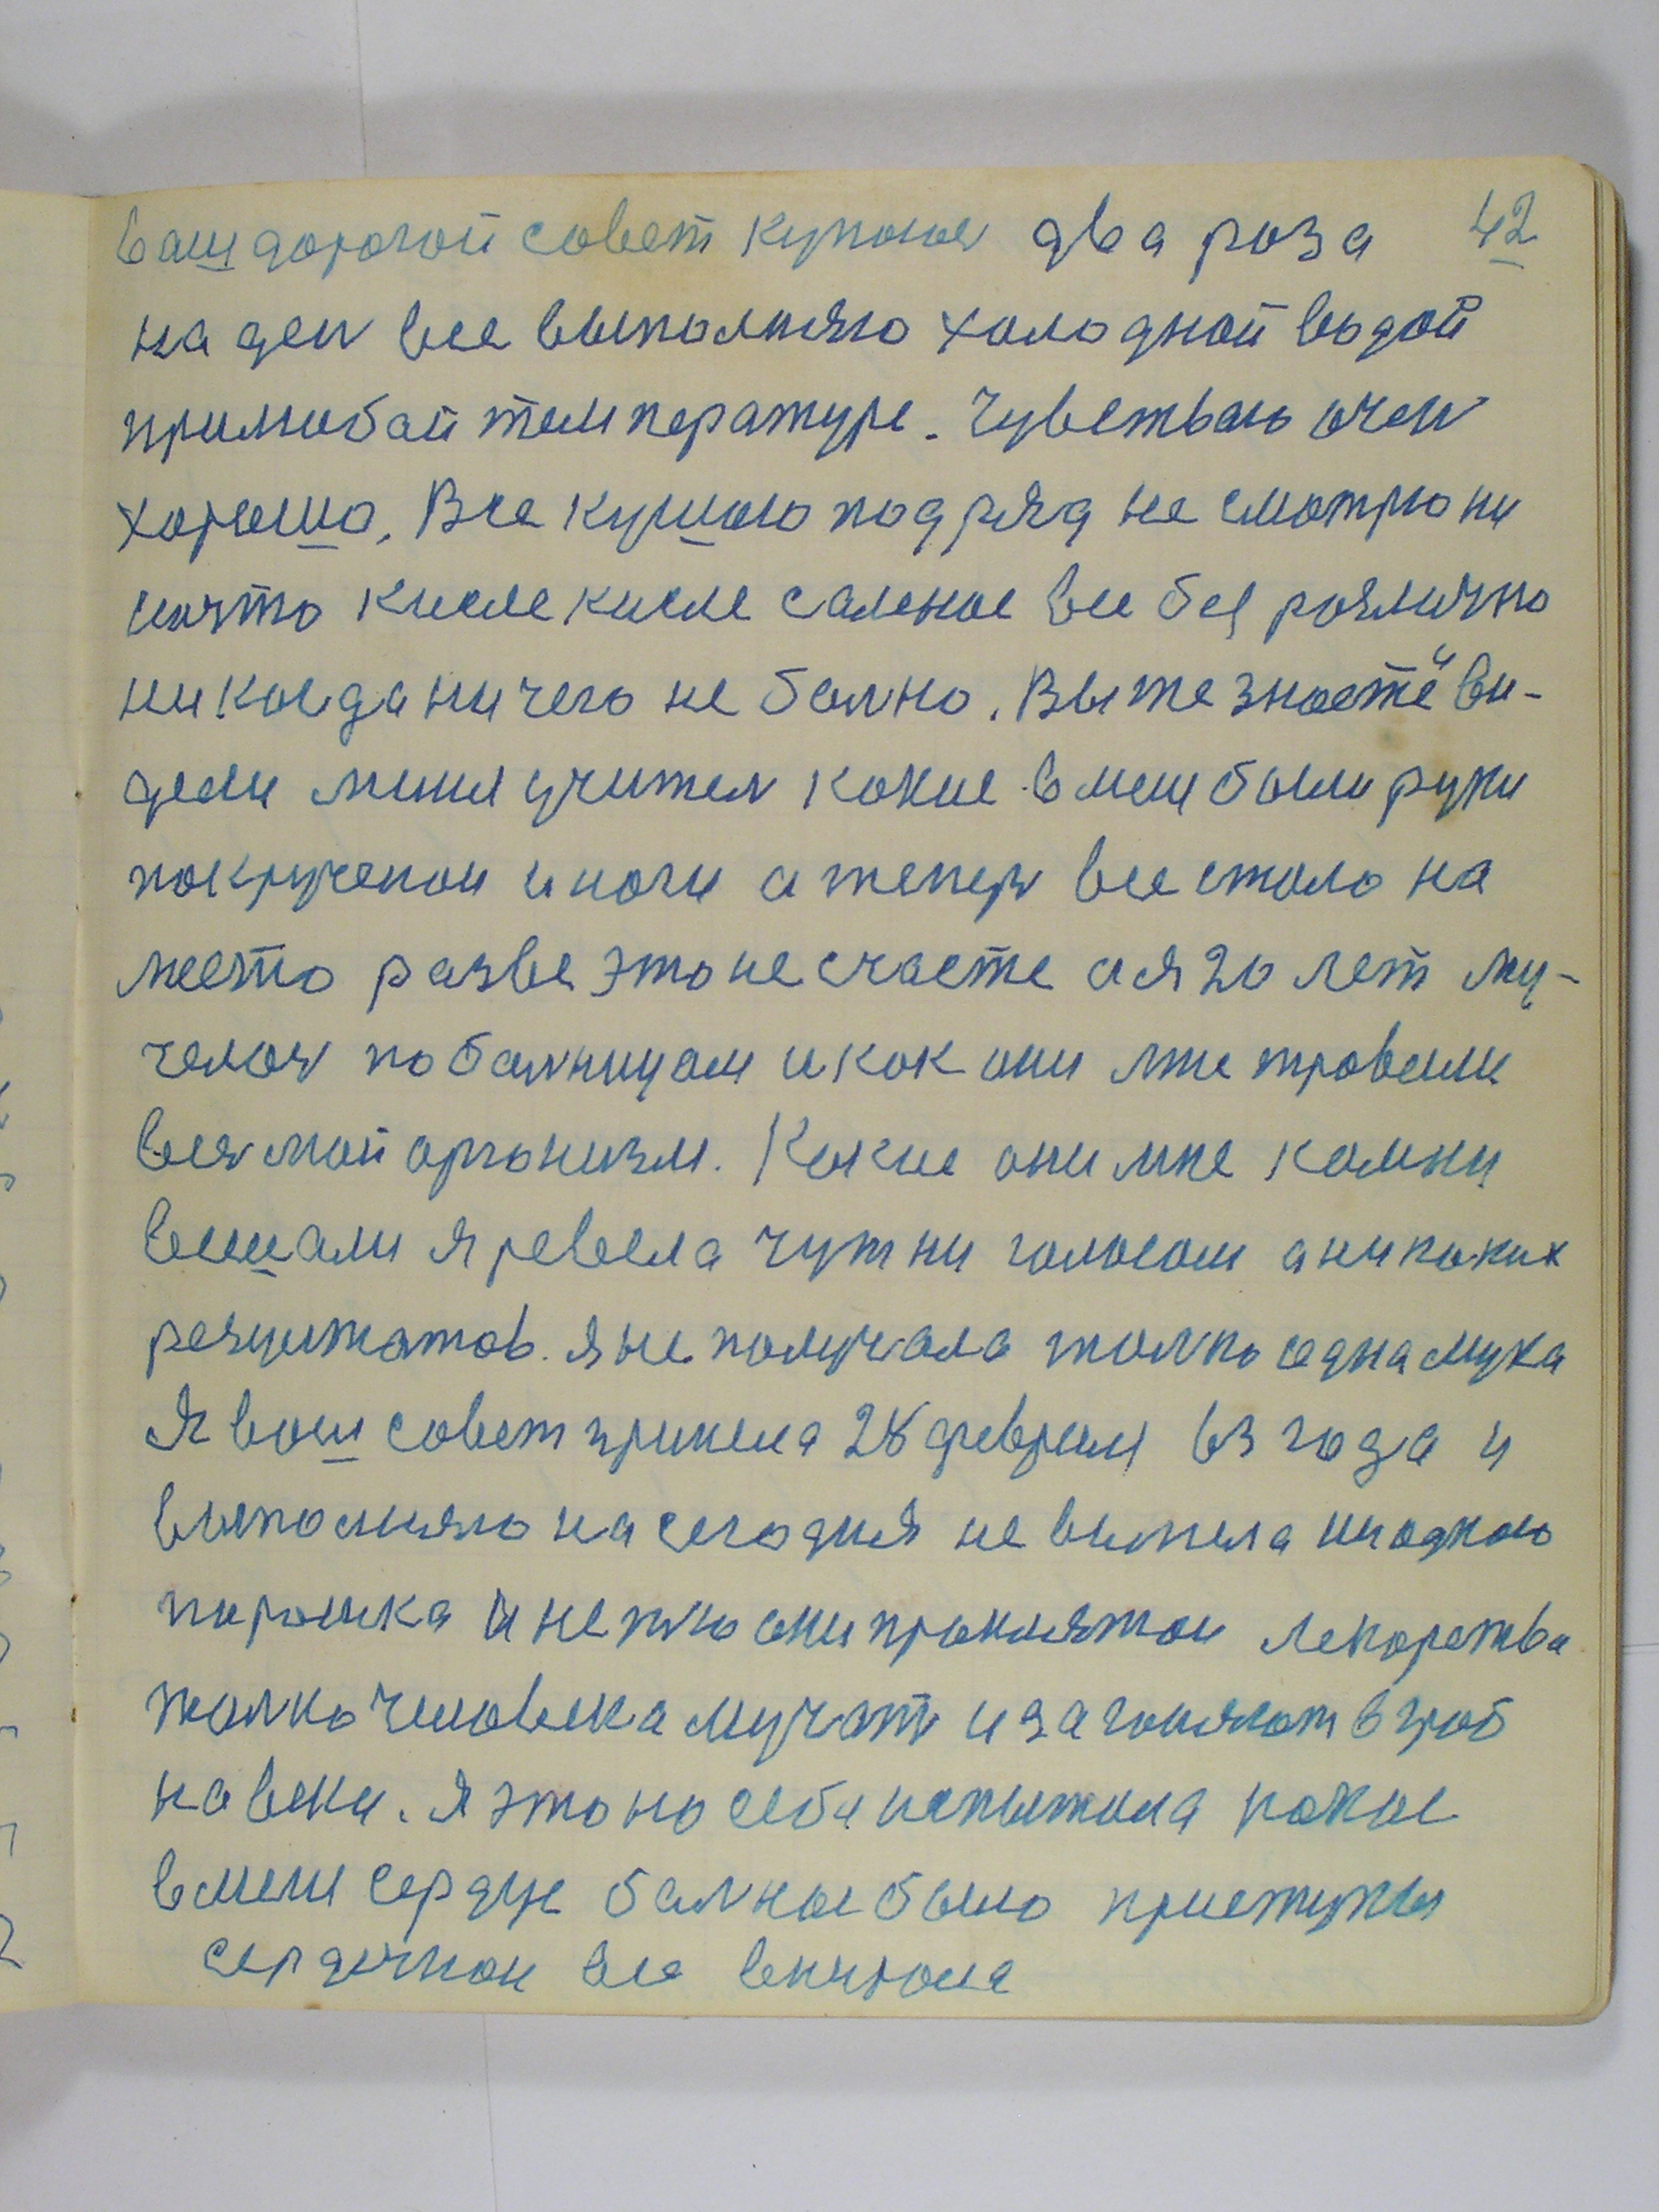 ваш дорогой совет купаюсь два роза 42
на ден все выполняю холодной водой
при любай температуре. Чувствою очен
хорошо. Все кушаю подряд не смотрю ни
на что кисле кисле саленое все без розлично
никогда ничего не болно. Вы же знаете ви-
дели меня учител какие в мене были руки
покрученои и ноги а тепер все стало на
место разве это не счасте а я 20 лет му-
чалась по болницам и как они мне травили
весь мой организм. Какие они мне камни
вешали я ревела чут ни голосом а никаких
резултатов. я не получала толко одна мука
Я ваш совет приняла 28 февраля 63 года и
выполняю на сегодня не выпела ни одного
порошка и не пю они проклятои лекарства
толко человека мучат и загоняют в гроб
на веки. Я это на себе испытала какое
в мене сердце болное было приступы
сердечнои все